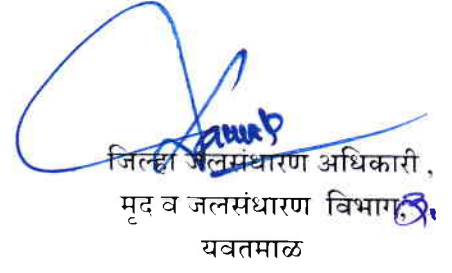 जिल्हा जलसंधारण अधिकारी,
मृद व जलसंधारण विभाग,
यवतमाळ